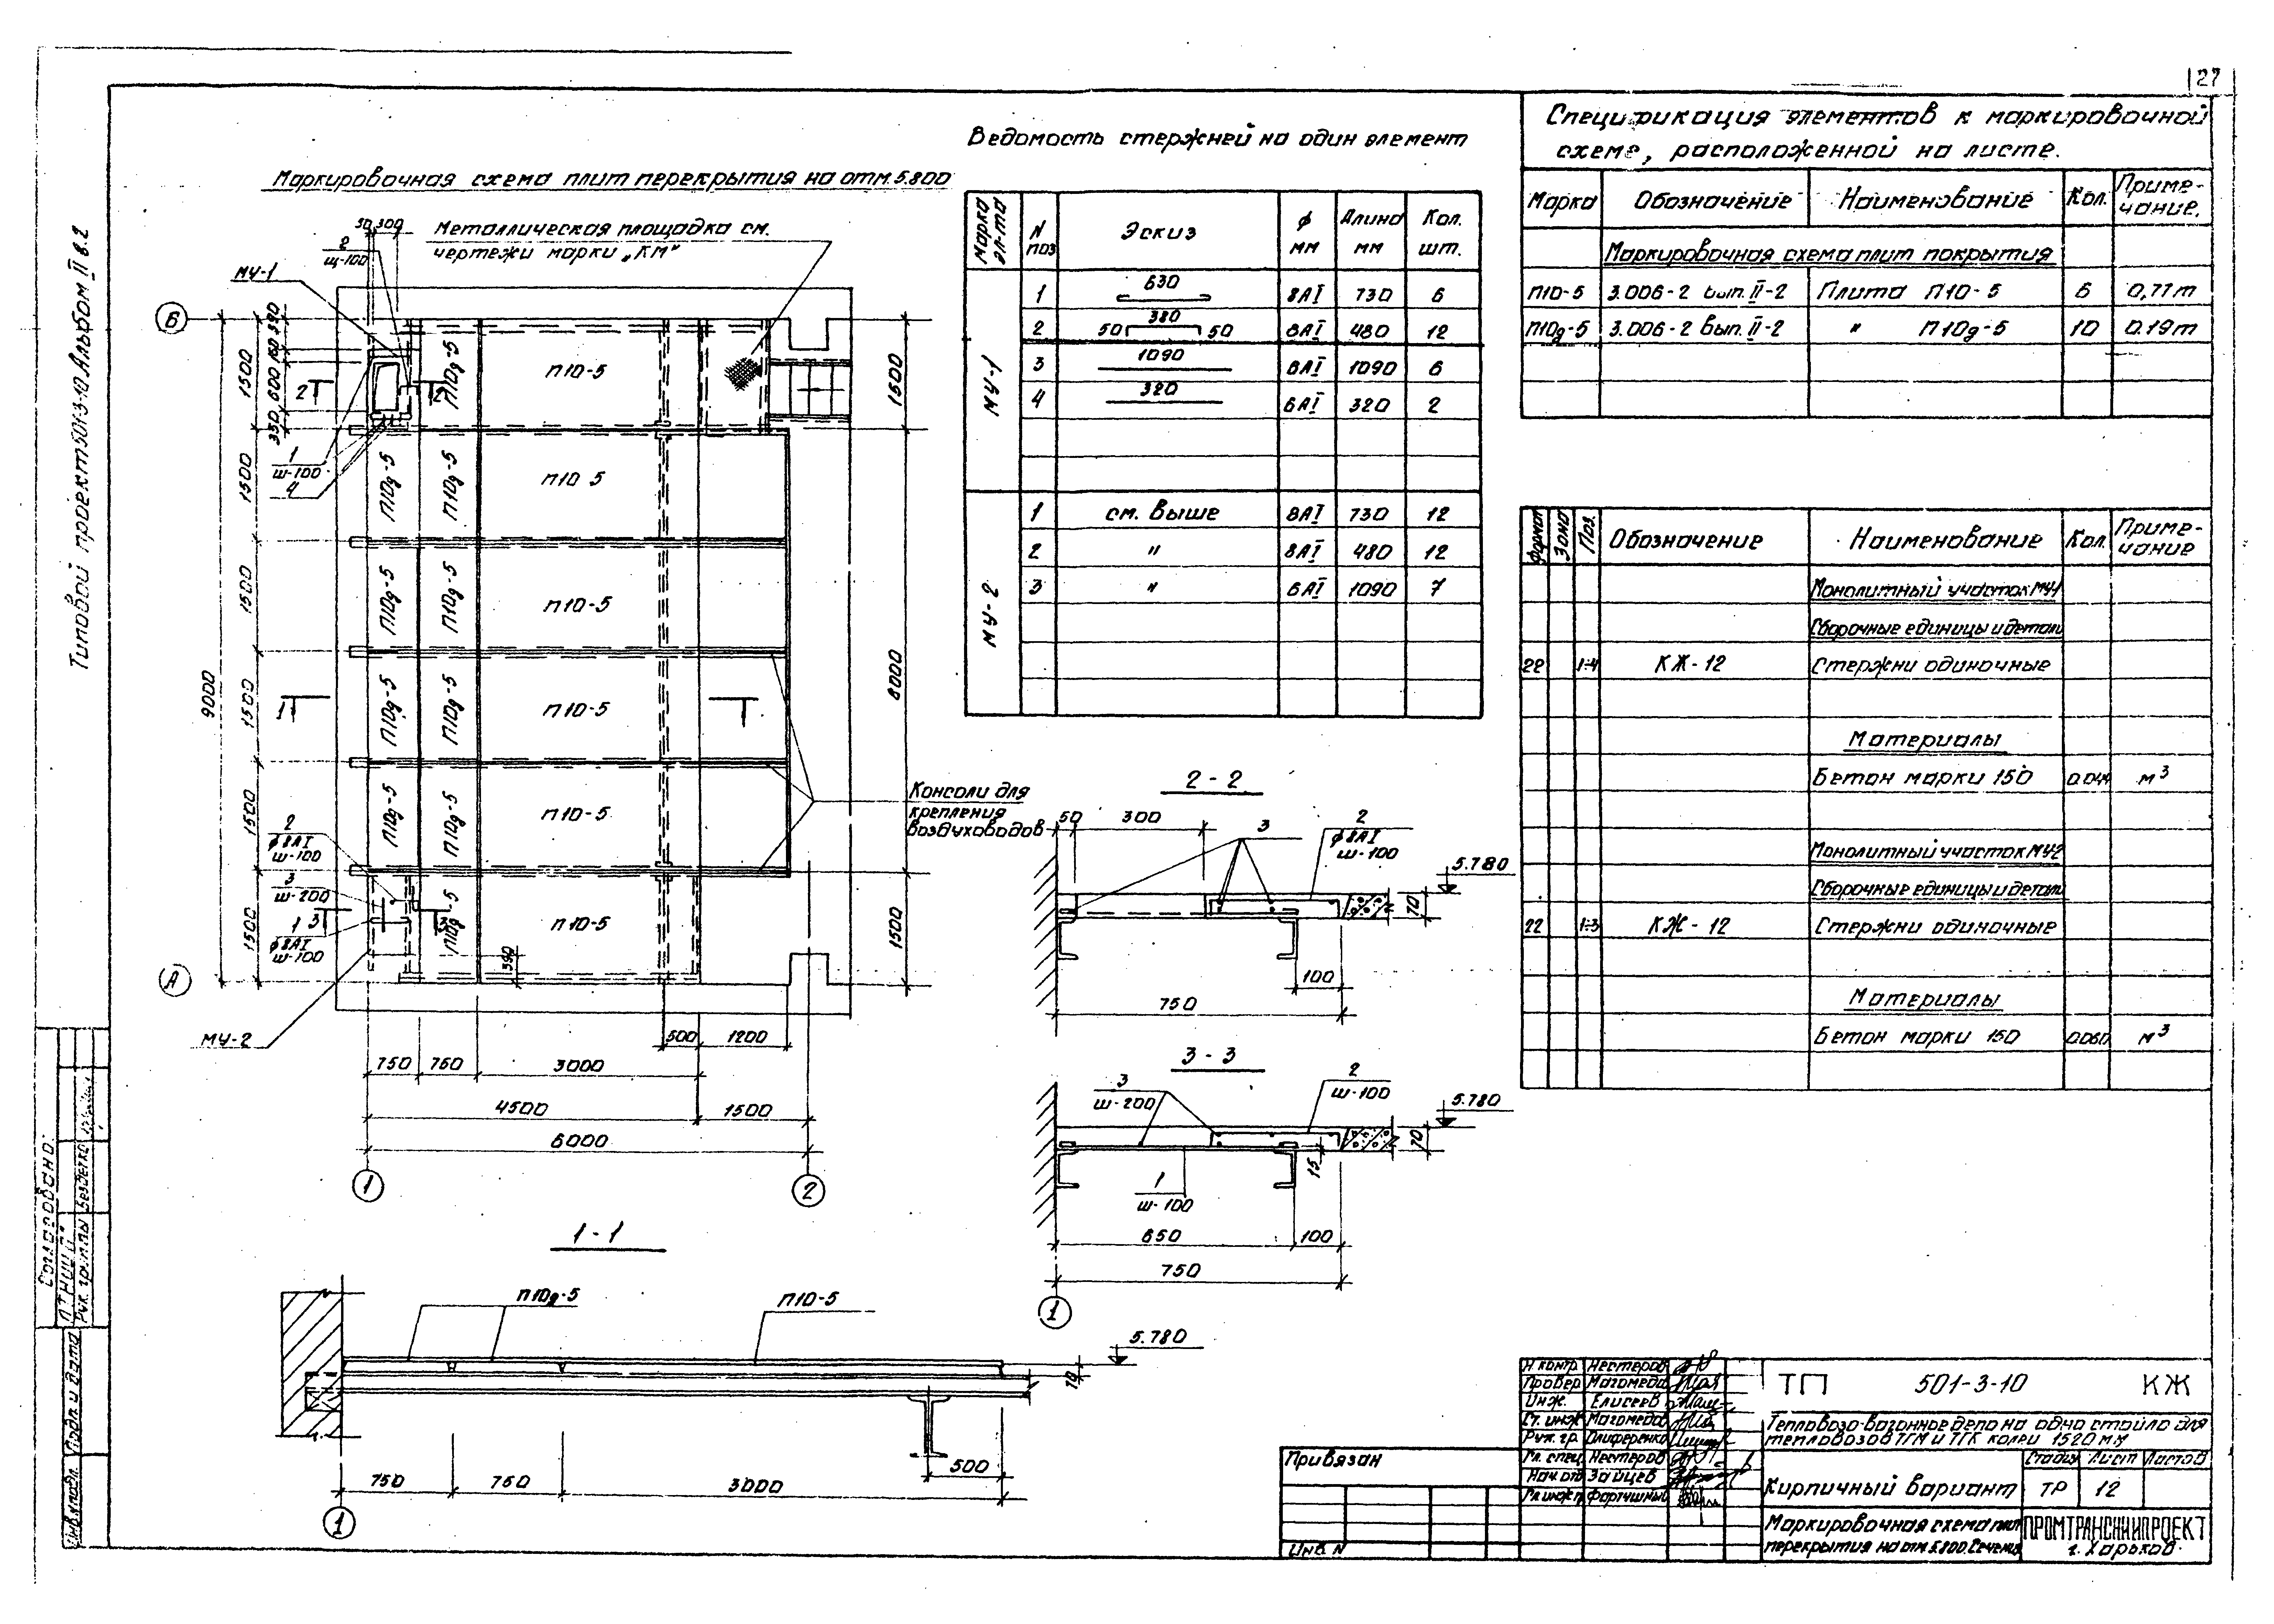 27
Типовой проект 501-3-10 Альбом II в.2
Маркировочная схема плит перекрытия на отм. 5.800
50 300
2
ш-100
МУ-1
Металлическая площадка см.
чертежи марки „КМ"
Б
П10д-5
П10-5
2
2
1
ш-100
4
1500
600
350
1500
П10д-5
П10д-5
П10-5
1500
П10д-5
П10д-5
П10-5
1500
9000
1500
6000
1
П10д-5
П10д-5
П10-5
1500
П10д-5
П10д-5
П10-5
1500
Консоли для
крепления
воздуховодов
2
ф8АI
ш-100
3
ш-200
1
ф8АI
ш-100
3
3
П10д-5
П10-5
390
1500
1500
А
МУ-2
500
1200
750
760
3000
4500
1500
6000
1
2
1-1
П10д-5
П10-5
5.780
70
500
750
760
3000
1
Ведомость стержней на один элемент
Марка эл-та
N поз
Эскиз
ф мм
Длина мм
Кол. шт.
МУ-1
1 630 8АI 730 6
2 50 380 50 8АI 480 12
3 1090 6АI 1090 6
4 320 6АI 320 2
МУ-2
1 см. выше 8АI 730 12
2 " 8АI 480 12
3 " 6АI 1090 7
2-2
50
300
3
2
ф8АI
ш-100
5.780
70
100
750
3-3
3
ш-200
2
ш-100
5.780
70
15
1
ш-100
650
100
750
1
Спецификация элементов к маркировочной
схеме, расположенной на листе.
Марка Обозначение Наименование Кол. Приме-
чание.
Маркировочная схема плит покрытия
П10-5 3.006-2 вып. II-2 Плита П10-5 6 0,77т
П10д-5 3.006-2 вып. II-2 " П10д-5 10 0.19т
Формат Зона Поз. Обозначение Наименование Кол. Приме-
чание
Монолитный участок МУ1
Сборочные единицы и детали
22 1÷4 КЖ-12 Стержни одиночные
Материалы
Бетон марки 150 м³
Монолитный участок МУ2
Сборочные единицы и детали
22 1÷3 КЖ-12 Стержни одиночные
Материалы
Бетон марки 150 0.060 м³
Согласовано:
Рук. группы
Инв.N подл.
Подп. и дата
Привязан
Инв. N
Н.контр. Нестеров
Провер. Магомедов
Инж. Елисеев
Ст. инж Магомедов
Рук. гр. Олиференко
Гл. спец. Нестеров
Нач. отд Зайцев
Гл.инж.п
ТП 501-3-10 КЖ
Тепловозо-вагонное депо на одно стойло для
тепловозов ТГМ и ТГК колеи 1520 мм
Кирпичный вариант
Стадия Лист Листов
ТР 12
Маркировочная схема плит
перекрытия на отм. 5.800. Сечения
ПРОМТРАНСНИИПРОЕКТ
г. Харьков